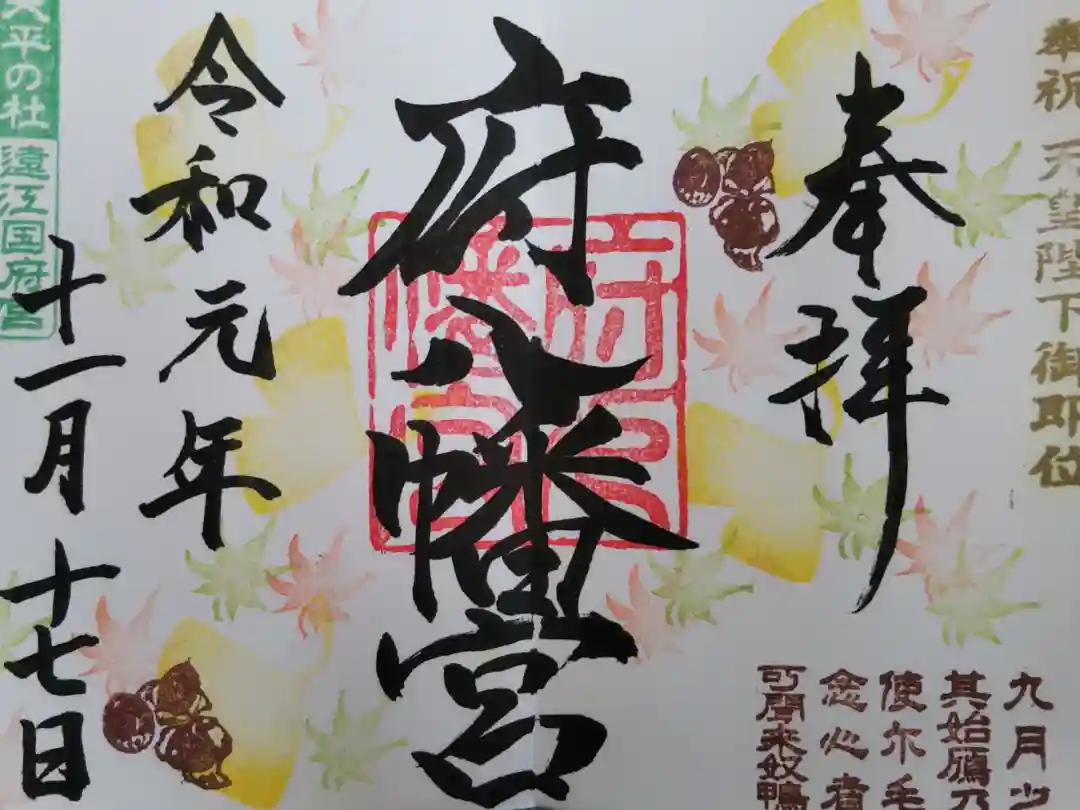 奉祝 天皇陛下御即位
奉拝
府八幡宮
府八幡宮
令和元年
十一月十七日
天平の杜
遠江国府宮
九月
其始鴈乃
使尓毛
念心者
可聞来奴鴨